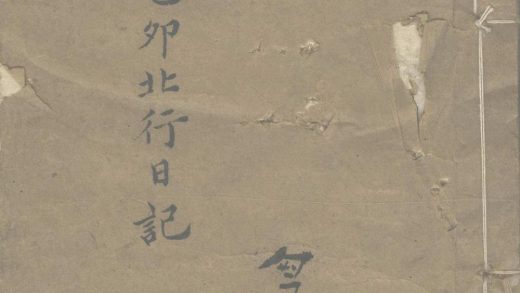 卯北行日記